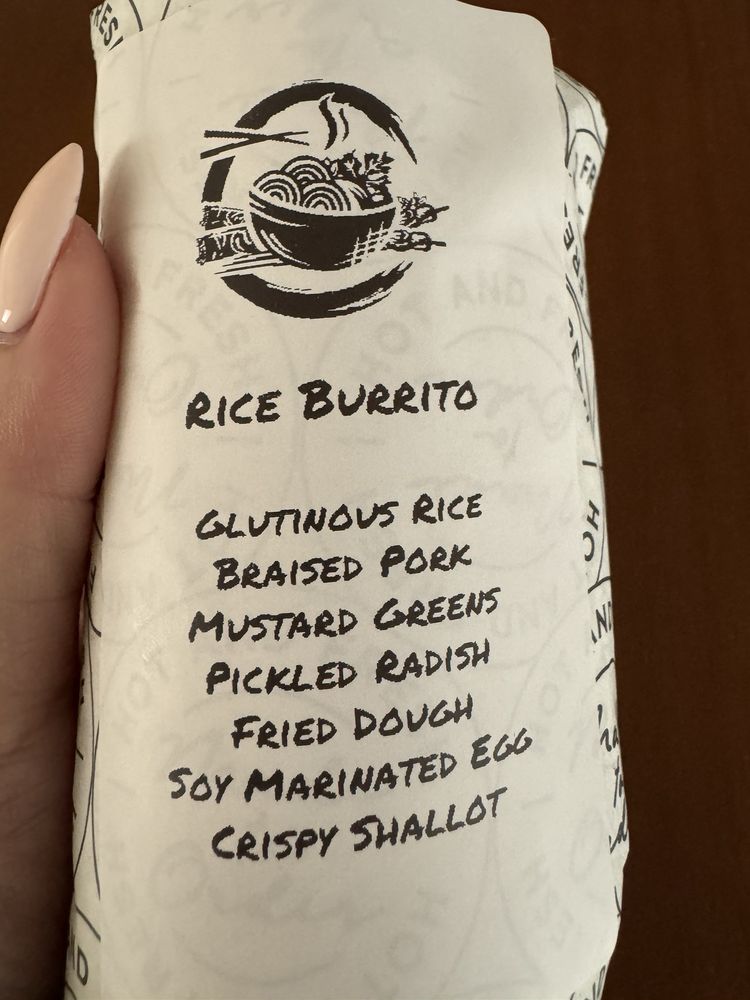 RICE BURRITO
GLUTINOUS RICE
BRAISED PORK
MUSTARD GREENS
PICKLED RADISH
FRIED DOUGH
SOY MARINATED EGG
CRISPY SHALLOT